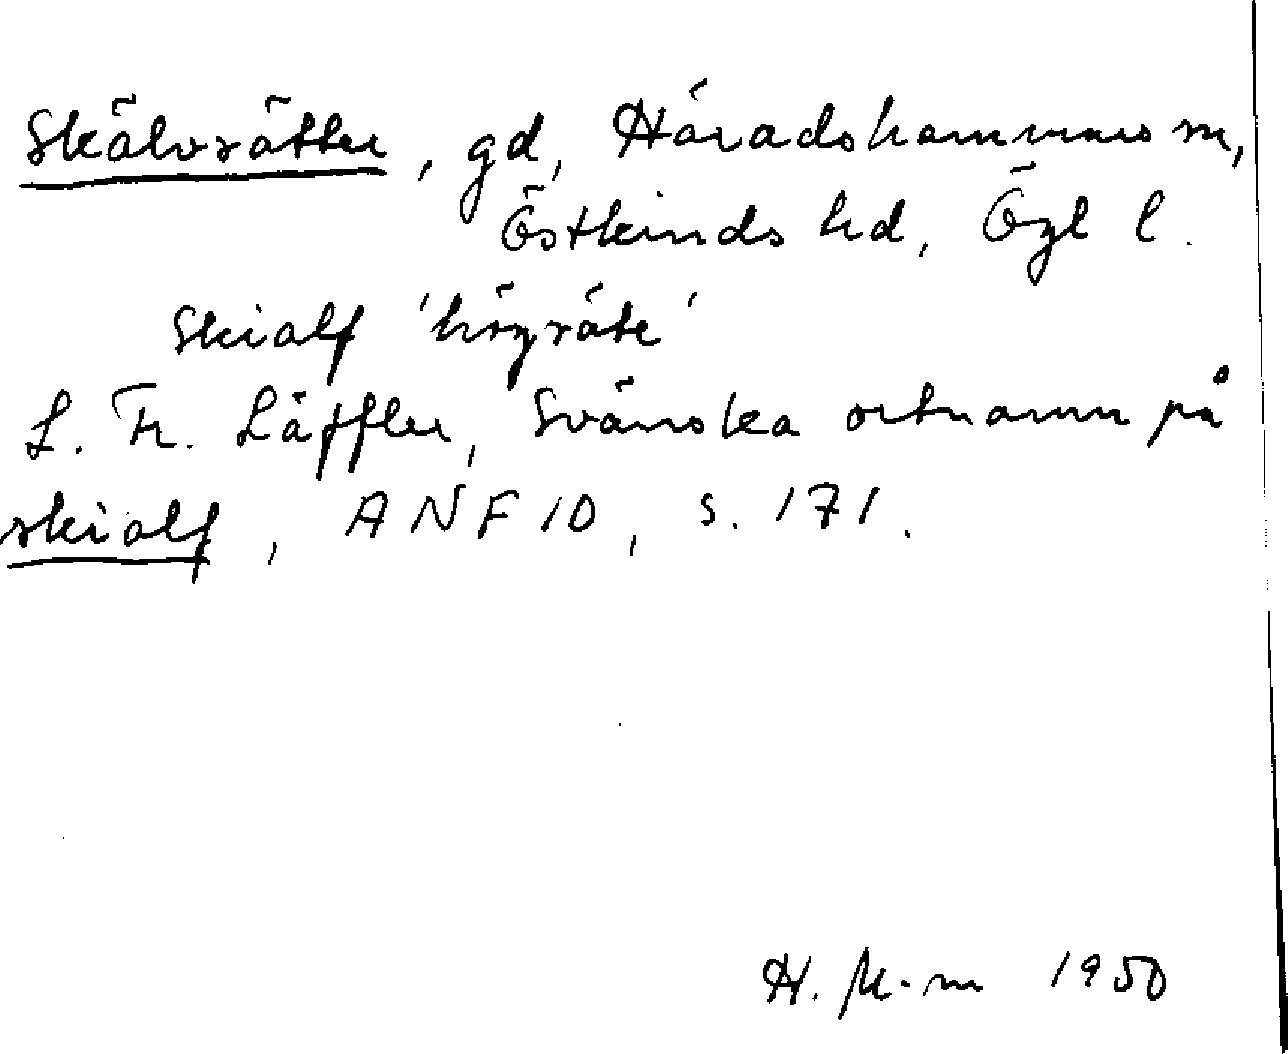 Skälvrätter, gd, Häradshammars sn,
Östkinds hd, Ögl l.
Skialf 'högsäte'
L. Fr. Läffler, Svänska ortnamn på
skialf, ANF 10, s. 171.
H. M-m 1950